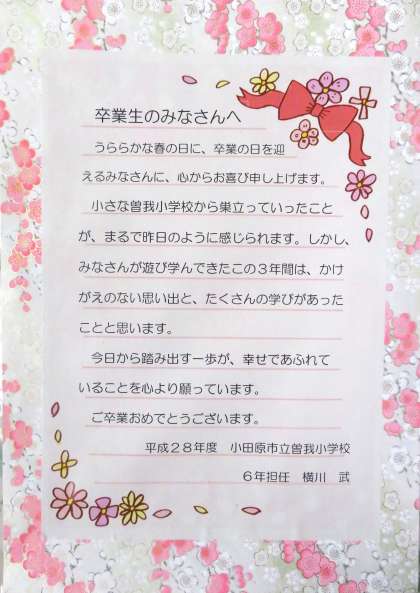 卒業生のみなさんへ
うららかな春の日に、卒業の日を迎
えるみなさんに、心からお喜び申し上げます。
小さな曽我小学校から巣立っていったこと
が、まるで昨日のように感じられます。しかし、
みなさんが遊び学んできたこの３年間は、かけ
がえのない思い出と、たくさんの学びがあった
ことと思います。
今日から踏み出す一歩が、幸せであふれて
いることを心より願っています。
ご卒業おめでとうございます。
平成２８年度　小田原市立曽我小学校
６年担任　横川　武